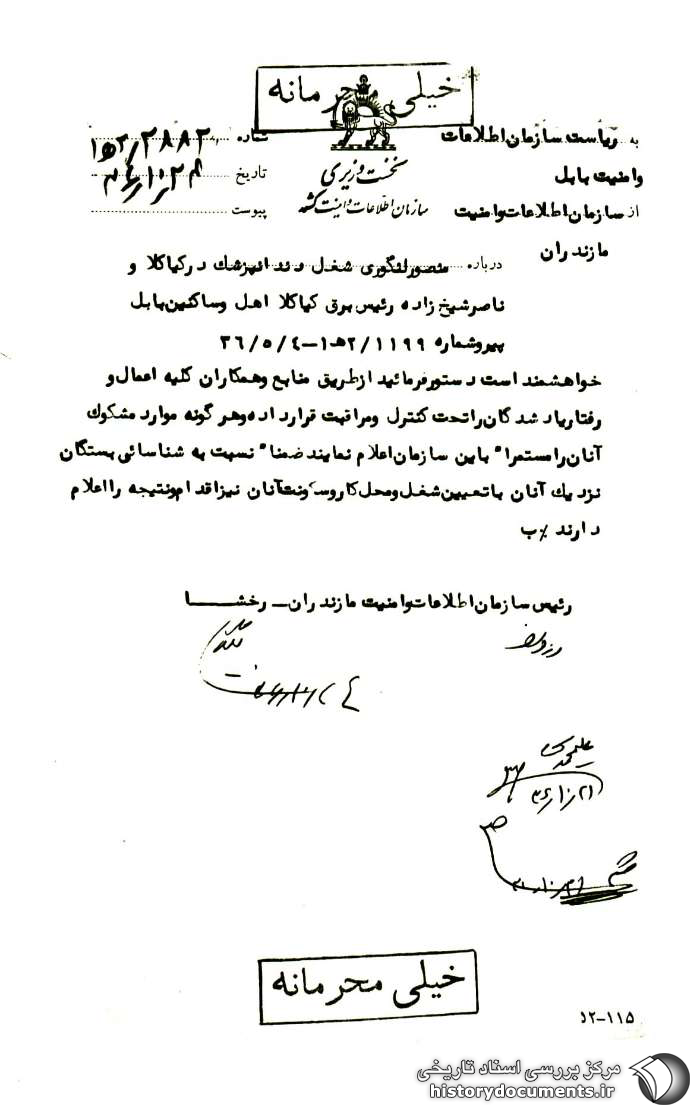 خیلی محرمانه
به ریاست سازمان اطلاعات
وامنیت بابل
از سازمان اطلاعات وامنیت
مازندران
نخست وزیری
سازمان اطلاعات و امنیت کشور
شماره
تاریخ
پیوست
درباره منصور لنگوری شغل دندانپزشک درکیاکلا و
ناصر شیخ زاده رئیس برق کیاکلا اهل وساکنین بابل
پیرو شماره ۱۱۹۹/۲ه۱-۳۶/۵/۴
خواهشمند است دستورفرمائید ازطریق منابع وهمکاران کلیه اعمال و
رفتاریاد شدگان راتحت کنترل ومراقبت قرارداده وهر گونه موارد مشکوک
آنان رامستمرا" باین سازمان اعلام نمایند ضمنا" نسبت به شناسائی بستگان
نزدیک آنان باتعیین شغل ومحل کاروسکونت آنان نیزاقدام ونتیجه رااعلام
دارند ٪ب
رئیس سازمان اطلاعات وامنیت مازندران - رخشا
خیلی محرمانه
۵۲-۱۱۵
مرکز بررسی اسناد تاریخی
historydocuments.ir